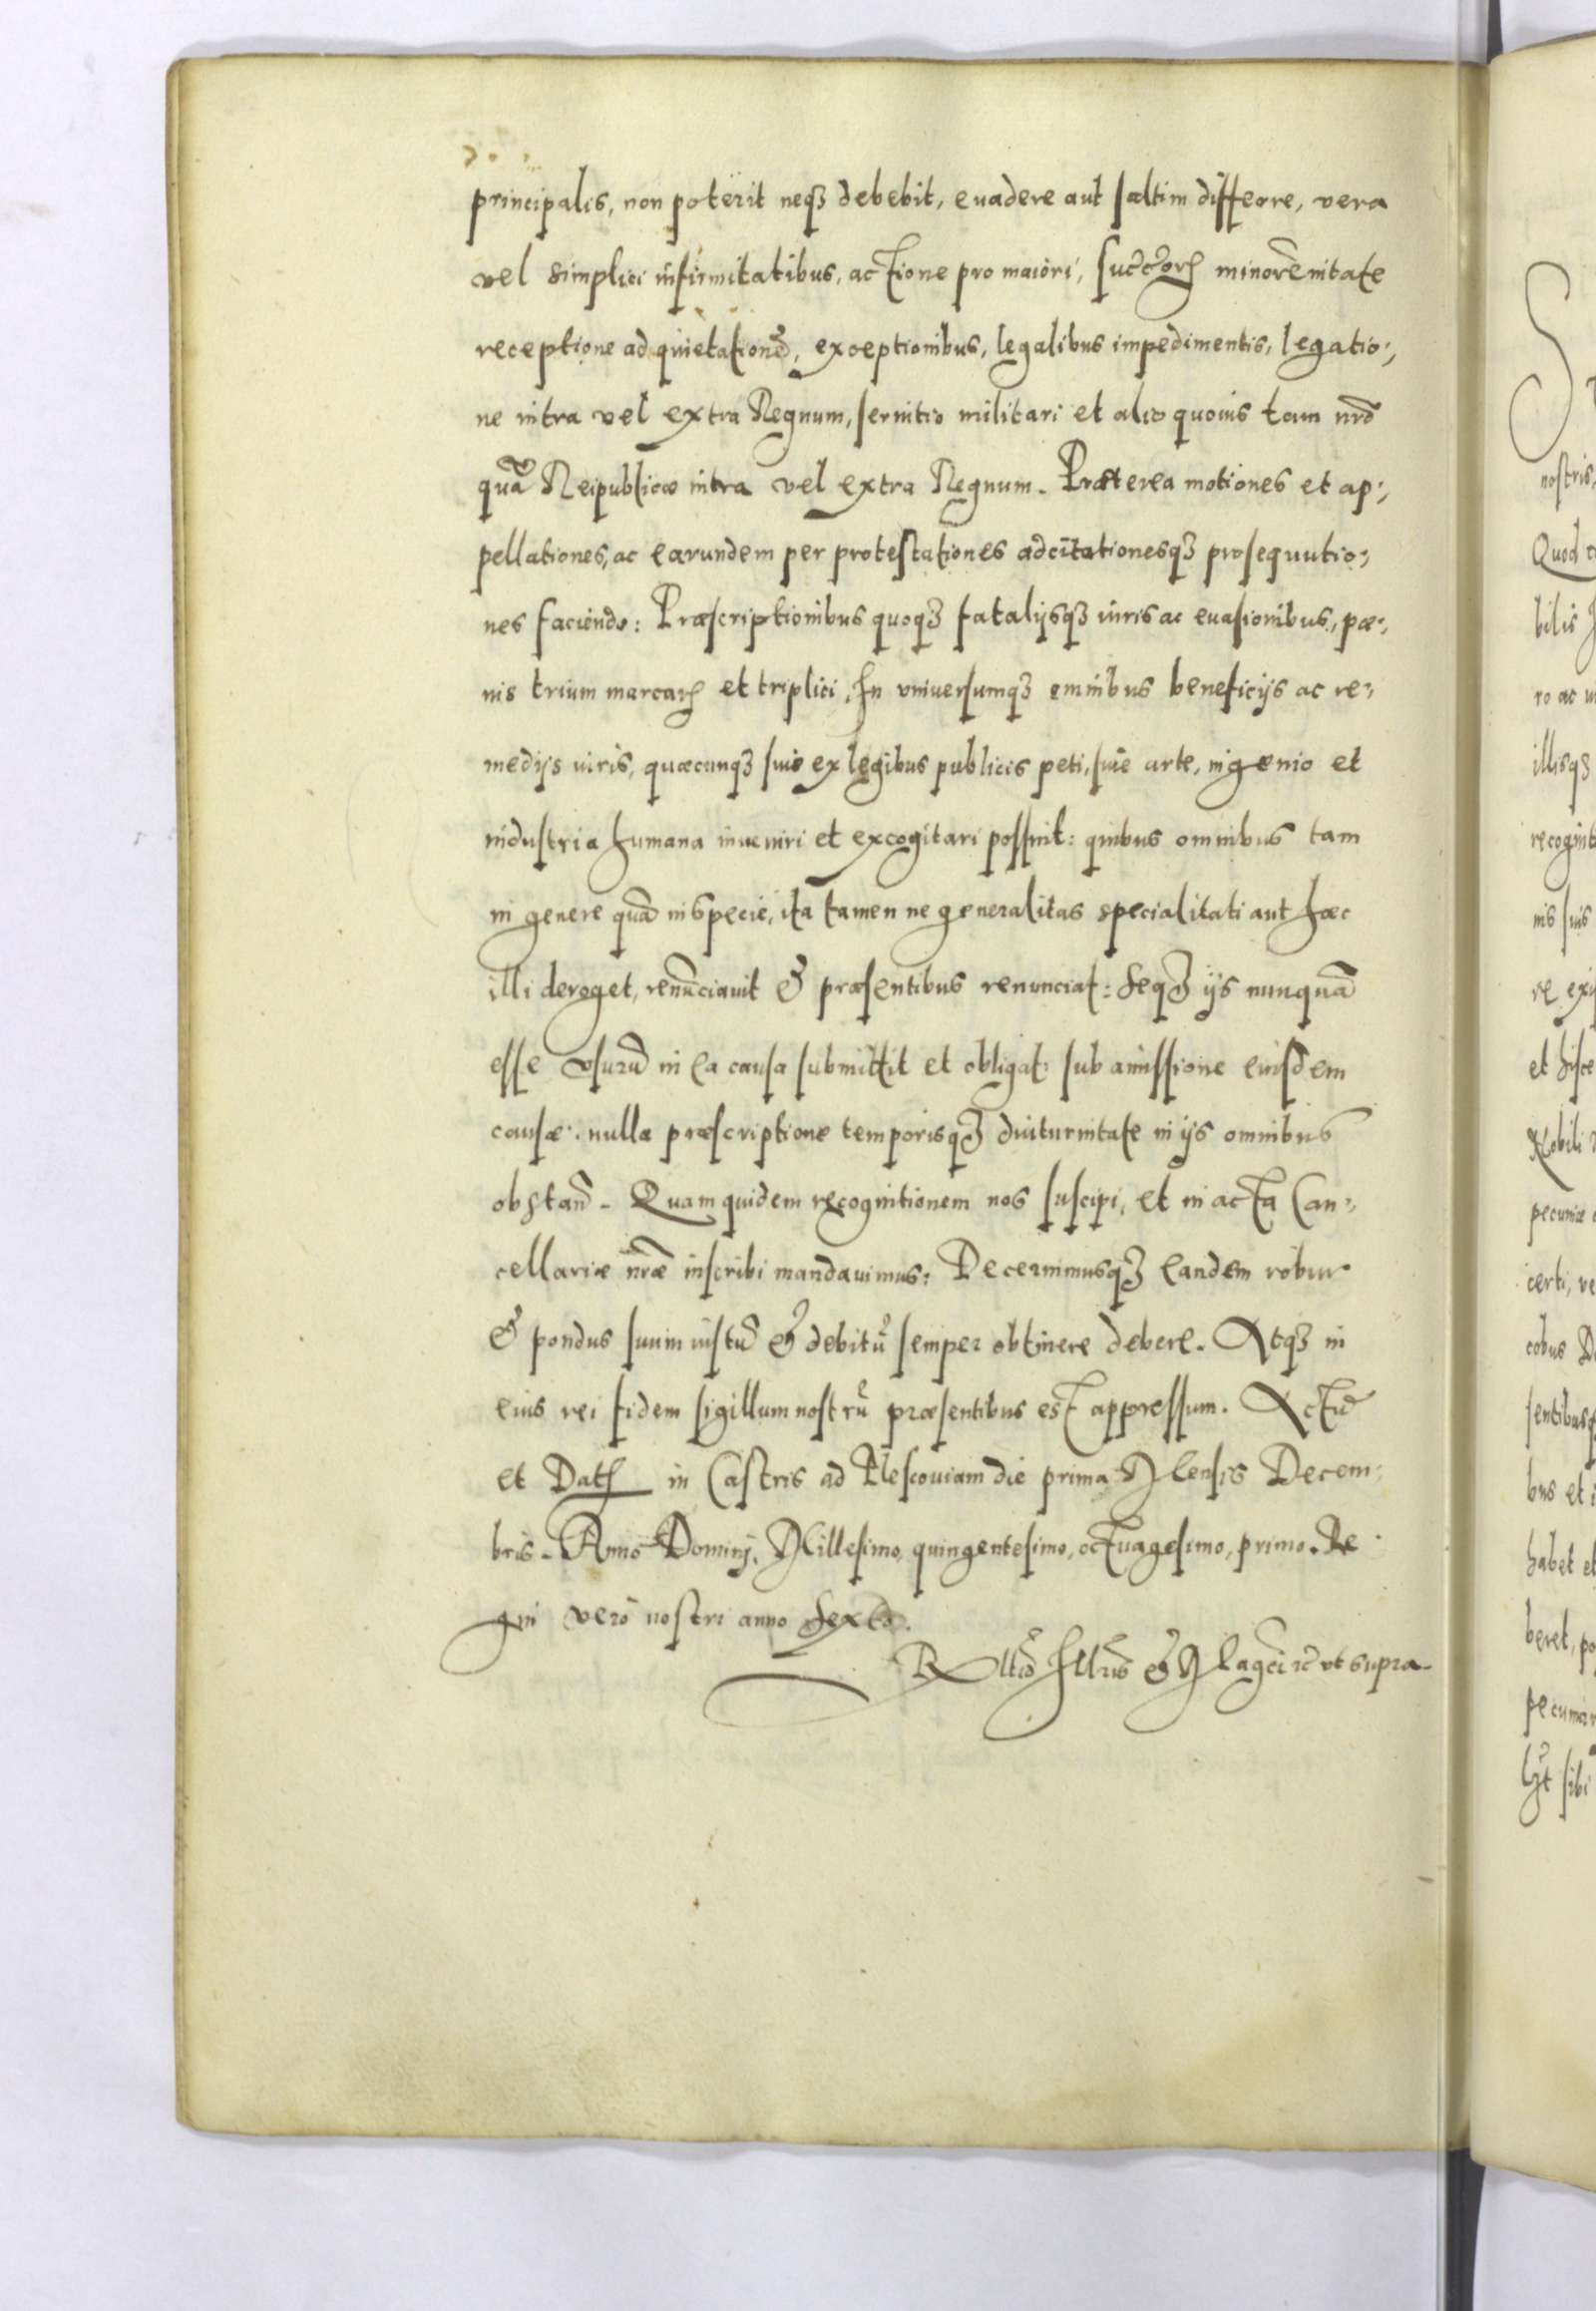 principalis, non poterit neqꝫ debebit, euadere aut saltim differre, vera
vel simplici infirmitatibus, actione pro maiori, succ̃orꝝ minorẽnitate
receptione ad quietationẽ, exceptionibus, legalibus impedimentis, legatio-
ne intra vel extra Regnum, seruitio militari et alio quouis tam nr̃o
quã Reipublicæ intra vel extra Regnum. Præterea motiones et ap-
pellationes, ac earundem per protestationes adcitationesqꝫ prosequutio-
nes faciendo: Præscriptionibus quoqꝫ fatalijsqꝫ iuris ac euasionibus, pæ-
nis trium marcarꝝ et triplici, In vniuersumqꝫ omnibus beneficijs ac re-
medijs iuris, quæcunqꝫ siue ex legibus publicis peti, siue arte, ingenio et
industria humana inueniri et excogitari possint: quibus omnibus tam
in genere quã in specie, ita tamen ne generalitas specialitati aut hæc
illi deroget, renũciauit & præsentibus renunciat: Seqꝫ ijs nunquã
esse vsurũ in ea causa submittit et obligat: sub amissione eiusdem
causæ: nulla præscriptione temporisqꝫ diuturnitate in ijs omnibus
obstañ. Quam quidem recognitionem nos suscipi, et in acta Can-
cellariæ nr̃æ inscribi mandauimus: Decernimusqꝫ eandem robur
& pondus suum iustũ & debitũ semper obtinere debere. Atqꝫ in
eius rei fidem sigillum nostrũ præsentibus est appressum. Actũ
et Datꝭ in Castris ad Plescouiam die prima Mensis Decem-
bris. Anno Dominj. Millesimo, quingentesimo, octuagesimo, primo. Re-
gni vero nostri anno Sexto.
Rltio Illris & Magci rc̃ vt supra
nostris,
Quod
bilis
ro ac
illisqꝫ
recognit
nis suis
re
et hisce
Nobili
pecuniæ
certi, ve
cobus
sentibus
bus et
habet et
beret, po
pecuniar
sibi